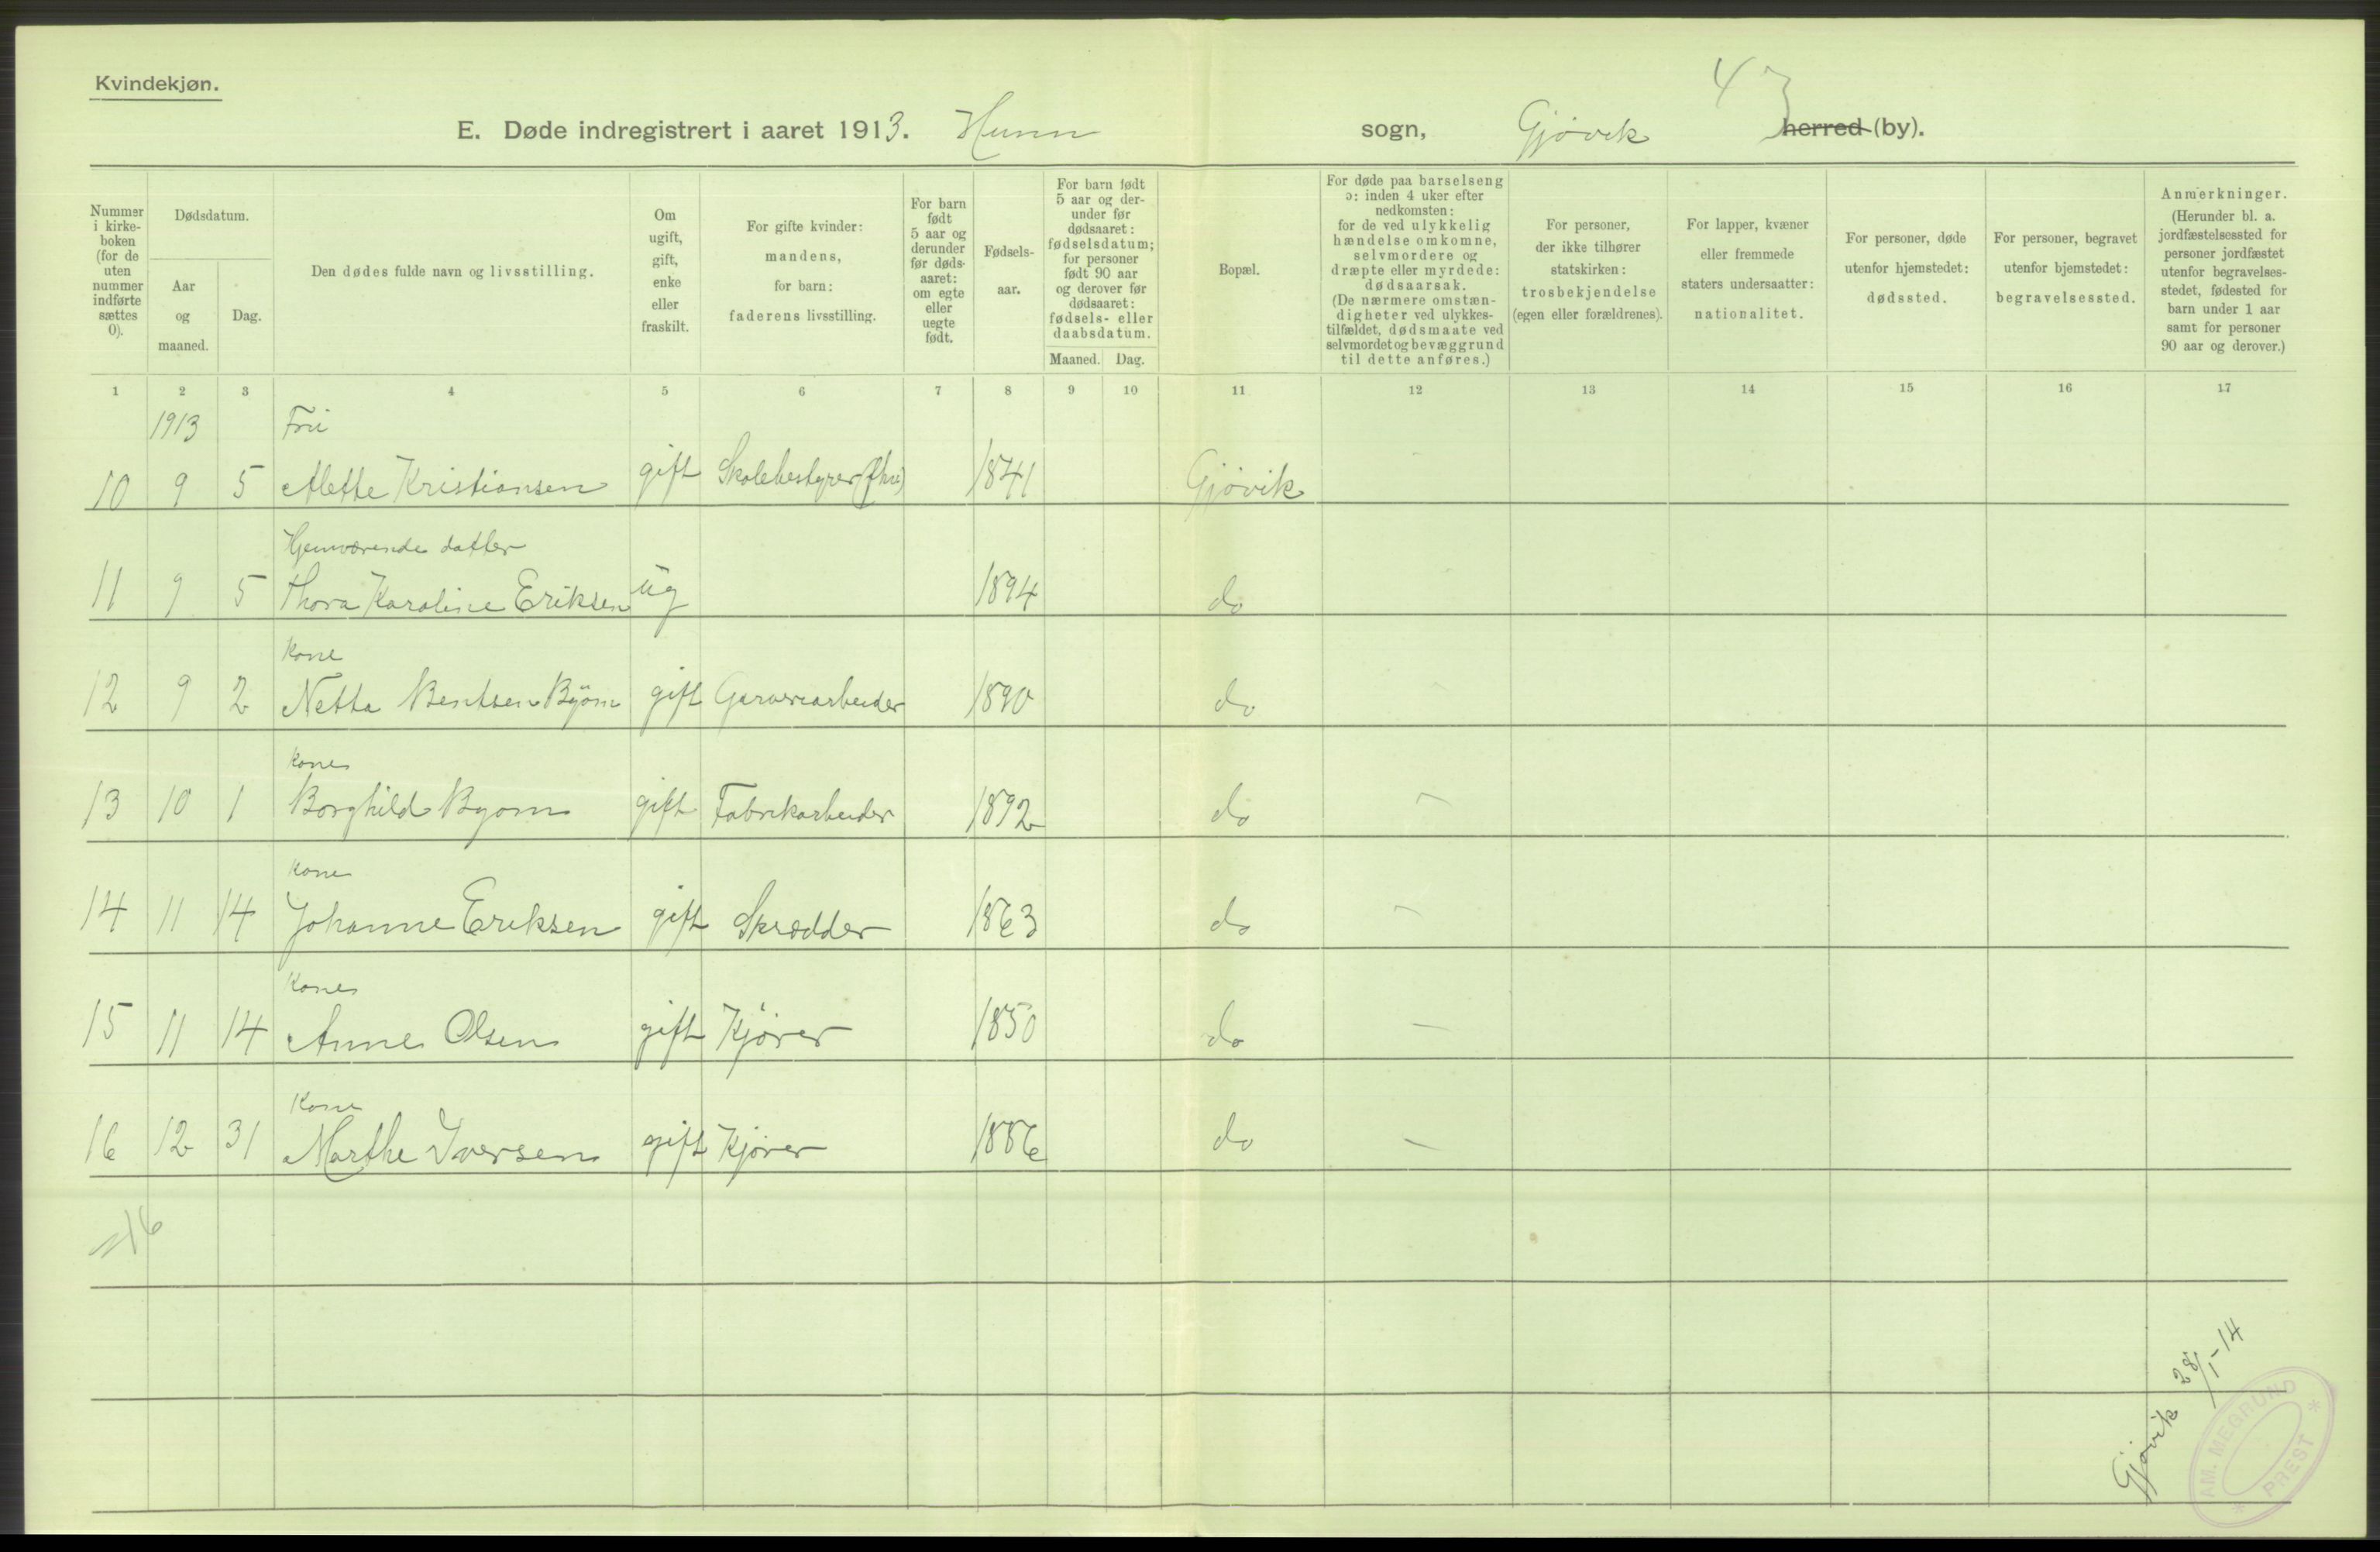 Kvindekjøn.
43
E. Døde indregistrert i aaret 1913. Hunn sogn, Gjøvik herred (by).
Nummer i kirke- boken (for de uten nummer indførte sættes 0).
Dødsdatum.
Aar og maaned.
Dag.
Den dødes fulde navn og livsstilling.
Om ugift, gift, enke eller fraskilt.
For gifte kvinder: mandens, for barn: faderens livsstilling.
For barn født 5 aar og derunder før døds- aaret: om egte eller uegte født.
Fødsels- aar.
For barn født 5 aar og der- under før dødsaaret: fødselsdatum; for personer født 90 aar og derover før dødsaaret: fødsels- eller daabsdatum.
Maaned. Dag.
Bopæl.
For døde paa barselseng ɔ: inden 4 uker efter nedkomsten: for de ved ulykkelig hændelse omkomne, selvmordere og dræpte eller myrdede: dødsaarsak. (De nærmere omstæn- digheter ved ulykkes- tilfældet, dødsmaate ved selvmordet og bevæggrund til dette anføres.)
For personer, der ikke tilhører statskirken: trosbekjendelse (egen eller forældrenes).
For lapper, kvæner eller fremmede staters undersaatter: nationalitet.
For personer, døde utenfor hjemstedet: dødssted.
For personer, begravet utenfor hjemstedet: begravelsessted.
Anmerkninger. (Herunder bl. a. jordfæstelsessted for personer jordfæstet utenfor begravelses- stedet, fødested for barn under 1 aar samt for personer 90 aar og derover.)
1 2 3 4 5 6 7 8 9 10 11 12 13 14 15 16 17
1913 Fru
10 9 5 Alette Kristiansen gift Skolebestyrer (fhv) 1841 Gjøvik
Hjemværende datter
11 9 5 Thora Karoline Eriksen ug 1894 do
Kone
12 9 2 Netta Bentsen Byöm gift Garveriarbeider 1890 do
Kone
13 10 1 Borghild Byom gift Fabrikarbeider 1892 do —
Kone
14 11 14 Johanne Eriksen gift Skrædder 1863 do —
Kone
15 11 14 Anne Olsen gift Kjører 1850 do —
Kone
16 12 31 Marthe Iversen gift Kjører 1886 do —
=16
Gjøvik 28/1-14
AM. MEGRUND
* PREST *